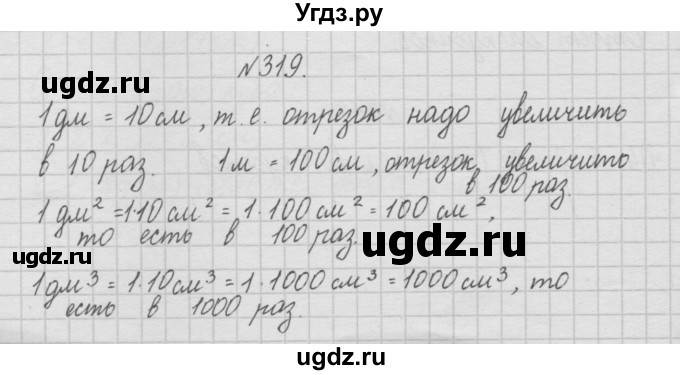 Угдз.ру
№319.
ugdz.ru
1дм = 10см, т.е. отрезок надо увеличить
в 10 раз. 1м = 100см, отрезок увеличить
в 100 раз.
1дм² = 1·10см² = 1·100см² = 100см²,
то есть в 100 раз.
ugdz.ru
ugdz.ru
1дм³ = 1·10см³ = 1·1000см³ = 1000см³, то
есть в 1000 раз.
ugdz.ru
ugdz.ru